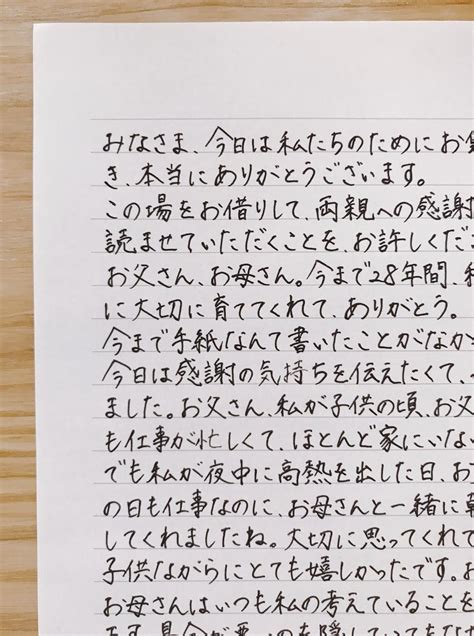 みなさま、今日は私たちのためにお
き、本当にありがとうございます。
この場をお借りして、両親への感謝
読ませていただくことを、お許しくだ
お父さん、お母さん。今まで28年間、私
に大切に育ててくれて、ありがとう。
今まで手紙なんて書いたことがなか
今日は感謝の気持ちを伝えたくて、
ました。お父さん、私が子供の頃、お父
も仕事が忙しくて、ほとんど家にいな
でも私が夜中に高熱を出した日、お
の日も仕事なのに、お母さんと一緒に
してくれましたね。大切に思ってくれて
子供ながらにとても嬉しかったです。お
お母さんはいつも私の考えていることを